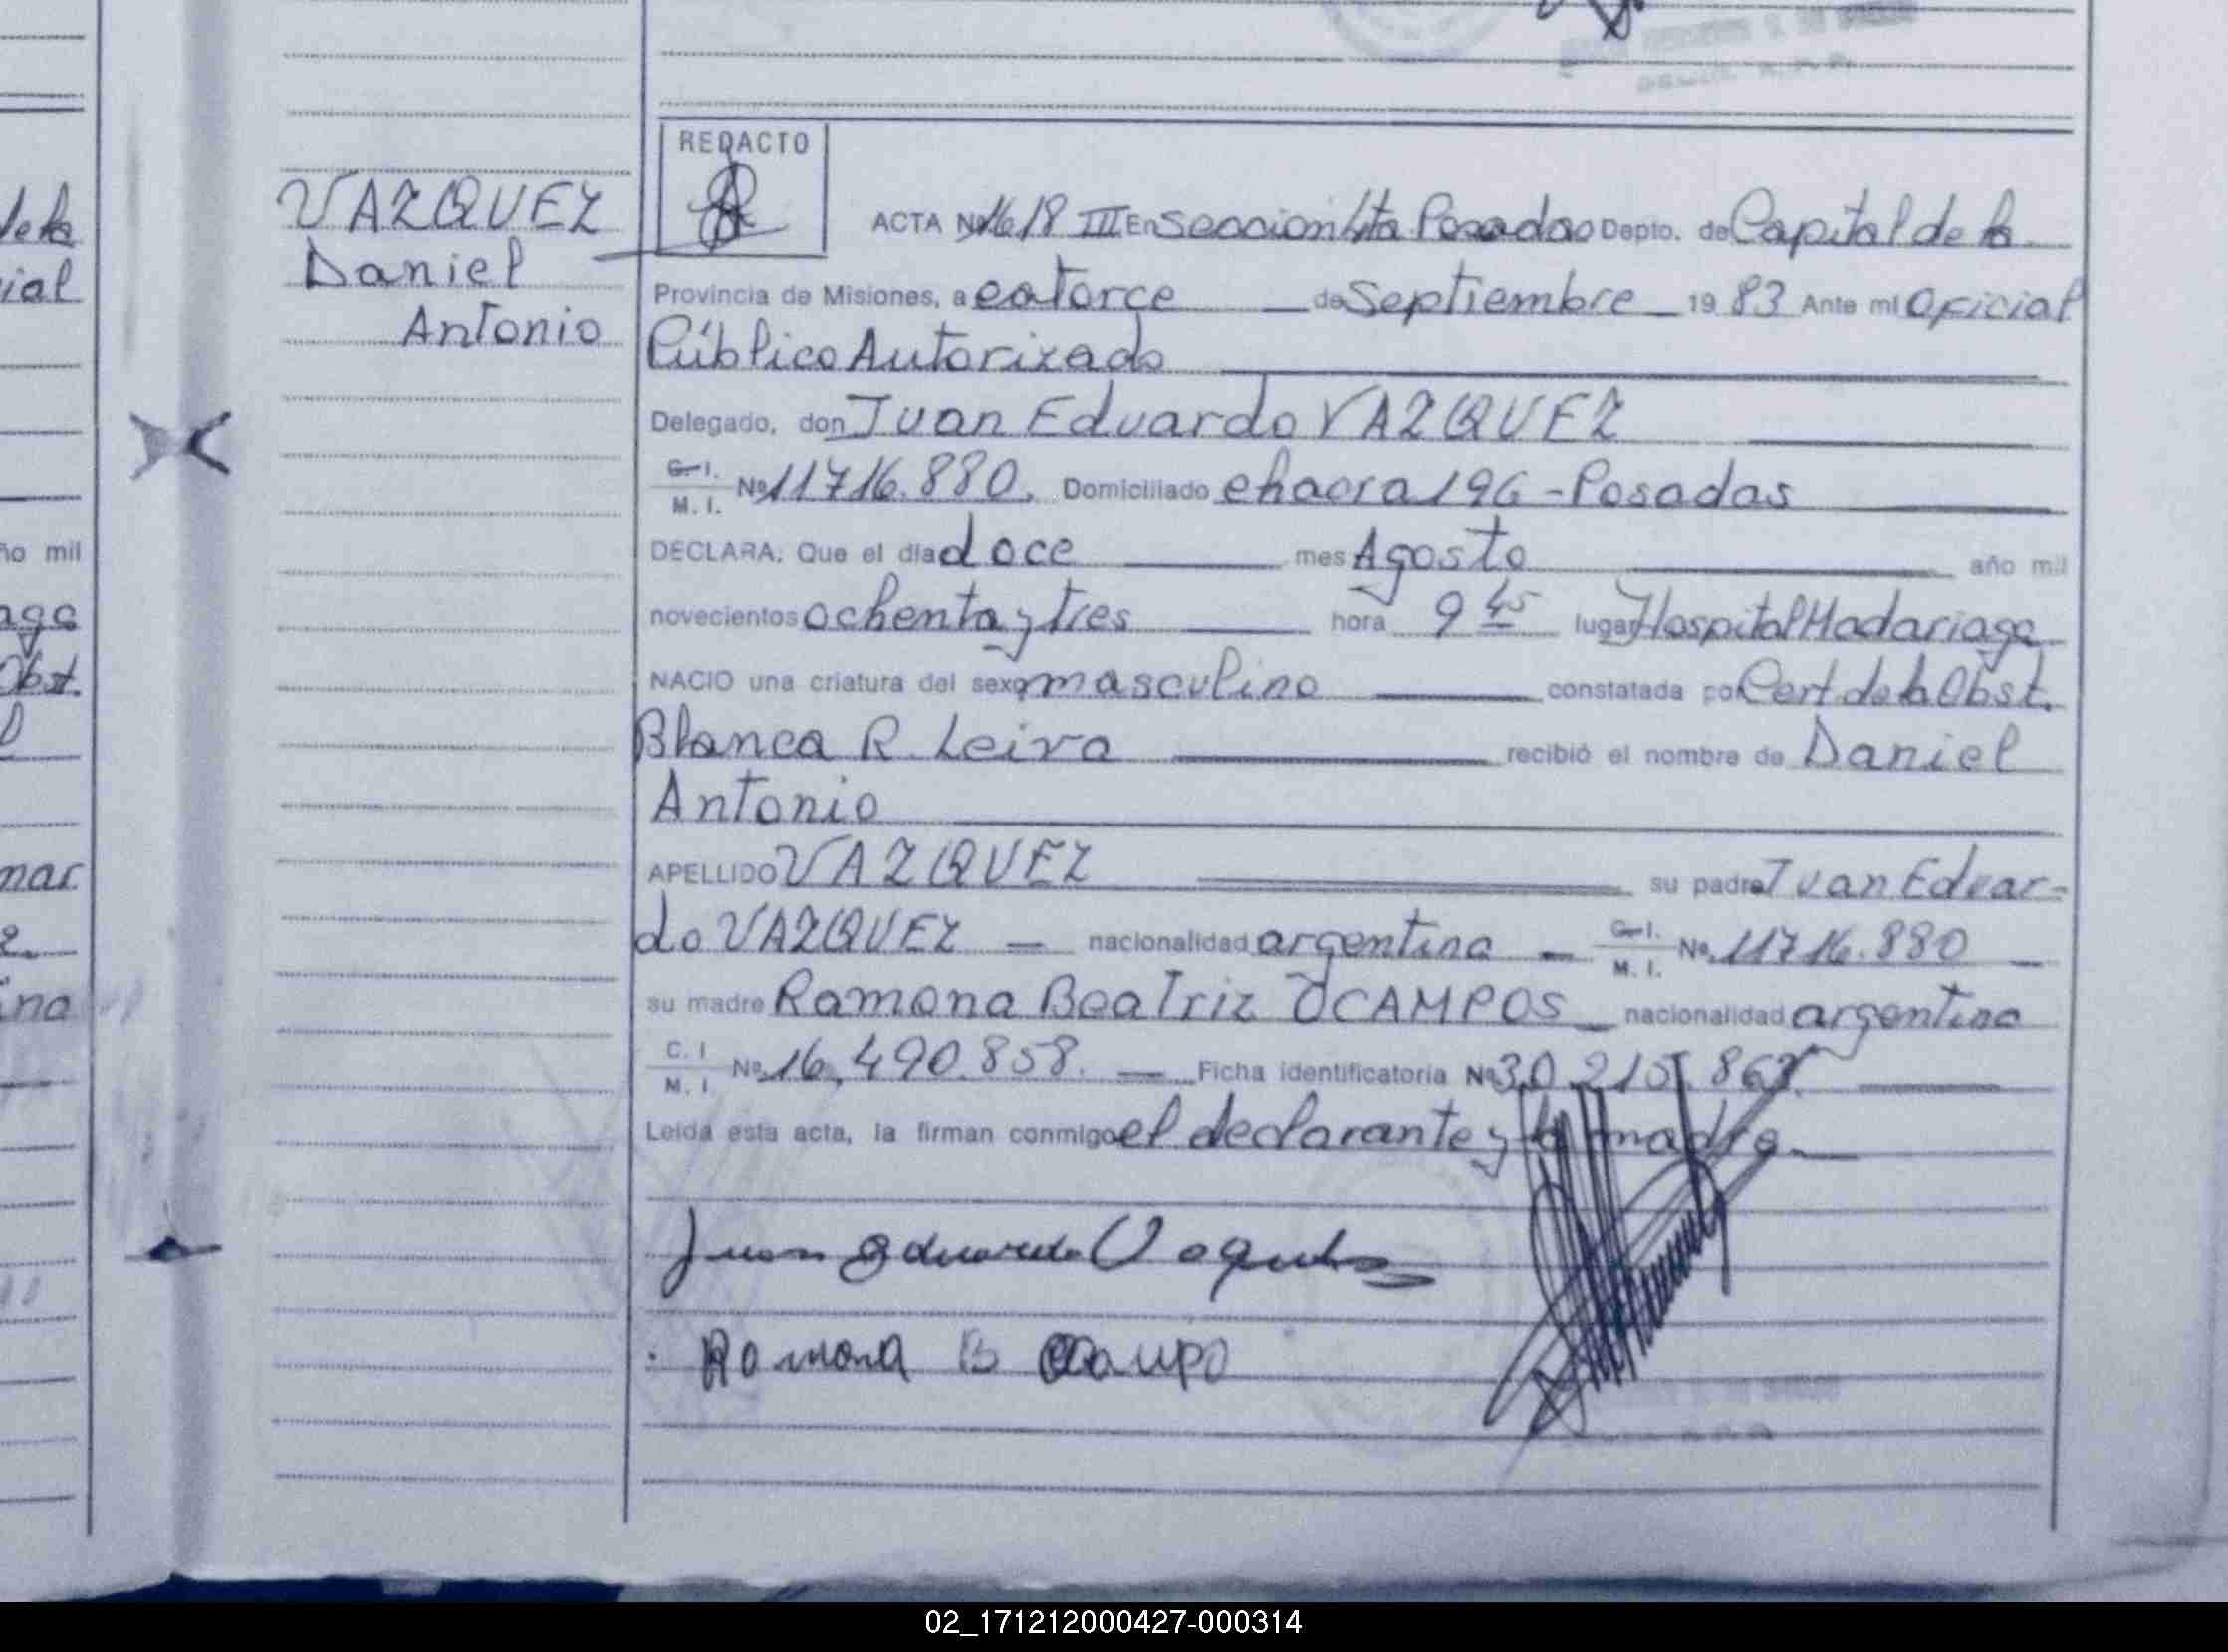 REDACTO
VAZQUEZ
Daniel
Antonio
ACTA Nº 1618 III En seccion 4ta Posadas Depto. de Capital de la
Provincia de Misiones, a catorce de Septiembre 19 83 Ante mi Oficial
Público Autorizado
Delegado, don Juan Eduardo VAZQUEZ
C. I.
M. I. Nº 11716.880. Domiciliado chacra 196 - Posadas
DECLARA: Que el día doce mes Agosto año mil
novecientos ochenta y tres hora 9 45 lugar Hospital Madariaga
NACIO una criatura del sexo masculino constatada por Cert de la Obst.
Blanca R. Leiva recibió el nombre de Daniel
Antonio
APELLIDO VAZQUEZ su padre Juan Eduar-
do VAZQUEZ — nacionalidad argentina — C. I. M. I. Nº 11716.880 —
su madre Ramona Beatriz OCAMPOS nacionalidad argentina
C. I
M. I. Nº 16.490.858. — Ficha identificatoria Nº 30.215.863.
Leída esta acta, la firman conmigo el declarante y la madre.
Juan Eduardo Vaquez
Ramona B Ocampo
de la
ial
ño mil
aga
Obst.
mar
ina
02_171212000427-000314